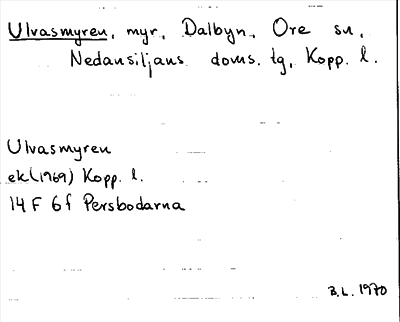 Ulvasmyren, myr, Dalbyn, Ore sn,
Nedansiljans doms. tg, Kopp. l.
Ulvasmyren
ek(1969) Kopp. l.
14 F 6 f Persbodarna
B.L. 1970